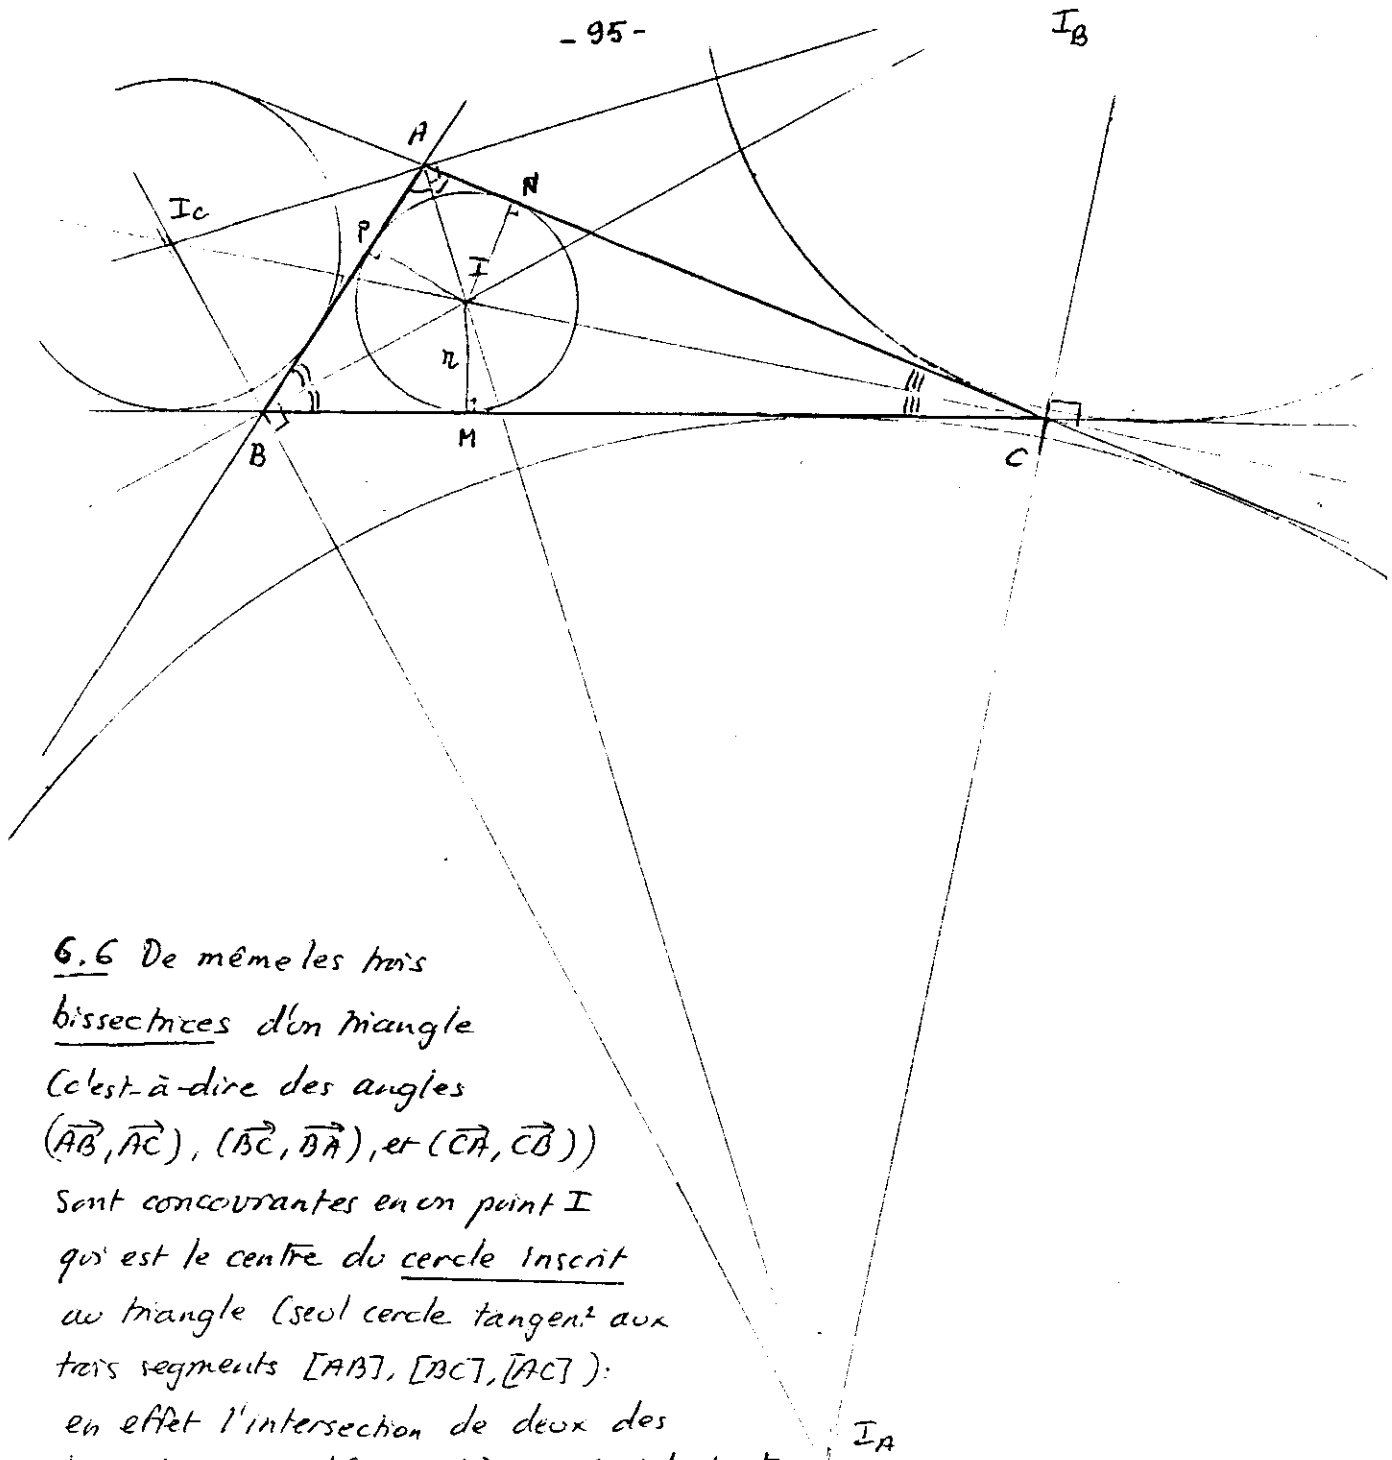 - 95 -
I_B
A
N
I_C
P
I
r
B
M
C
6.6 De même les trois
bissectrices d'un triangle
(c'est-à-dire des angles
(AB→, AC→), (BC→, BA→), et (CA→, CB→))
sont concourantes en un point I
qui est le centre du cercle inscrit
au triangle (seul cercle tangent aux
trois segments [AB], [BC], [AC]):
en effet l'intersection de deux des
I_A